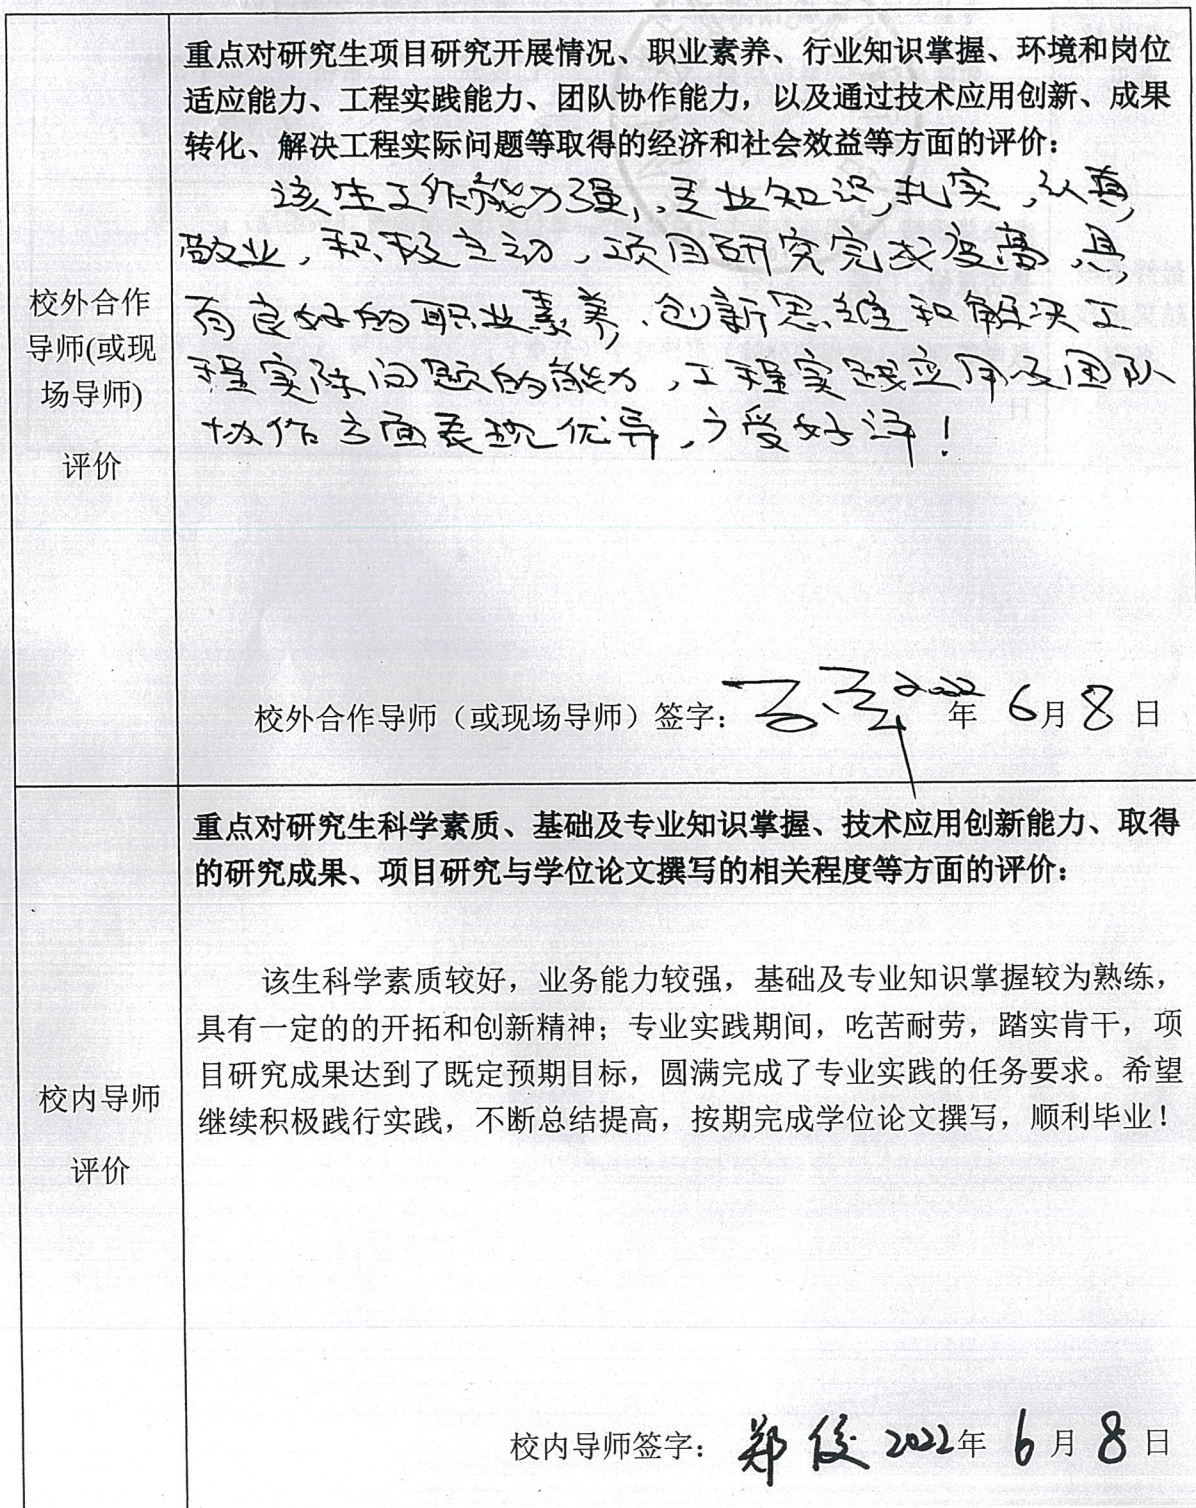 重点对研究生项目研究开展情况、职业素养、行业知识掌握、环境和岗位
适应能力、工程实践能力、团队协作能力，以及通过技术应用创新、成果
转化、解决工程实际问题等取得的经济和社会效益等方面的评价：
该生工作能力强，专业知识扎实，认真
敬业，积极主动，项目研究完成度高，具
有良好的职业素养、创新思维和解决工
程实际问题的能力，工程实践应用及团队
协作方面表现优异，广受好评！
校外合作
导师(或现
场导师)
评价
校外合作导师（或现场导师）签字： 2022年 6月 8日
重点对研究生科学素质、基础及专业知识掌握、技术应用创新能力、取得
的研究成果、项目研究与学位论文撰写的相关程度等方面的评价：
该生科学素质较好，业务能力较强，基础及专业知识掌握较为熟练，
具有一定的的开拓和创新精神；专业实践期间，吃苦耐劳，踏实肯干，项
目研究成果达到了既定预期目标，圆满完成了专业实践的任务要求。希望
继续积极践行实践，不断总结提高，按期完成学位论文撰写，顺利毕业！
校内导师
评价
校内导师签字： 郑俊 2022年 6月 8日